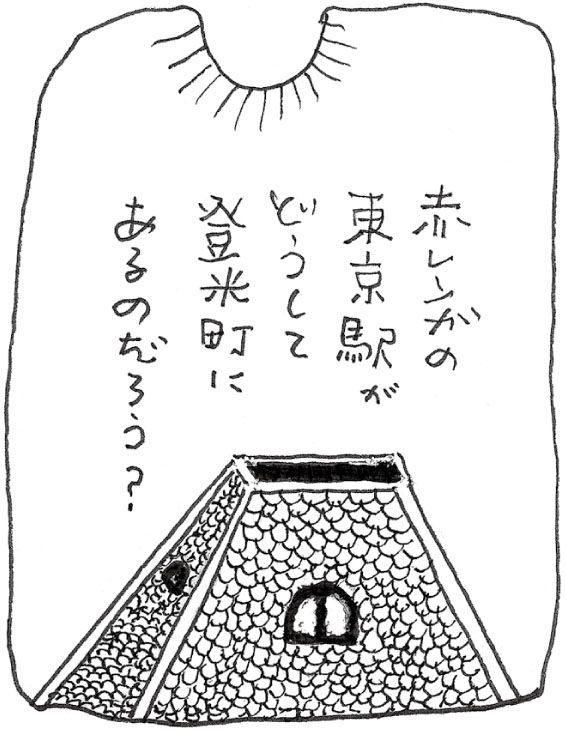 赤レンガの
東京駅が
どうして
登米町に
あるのだろう?